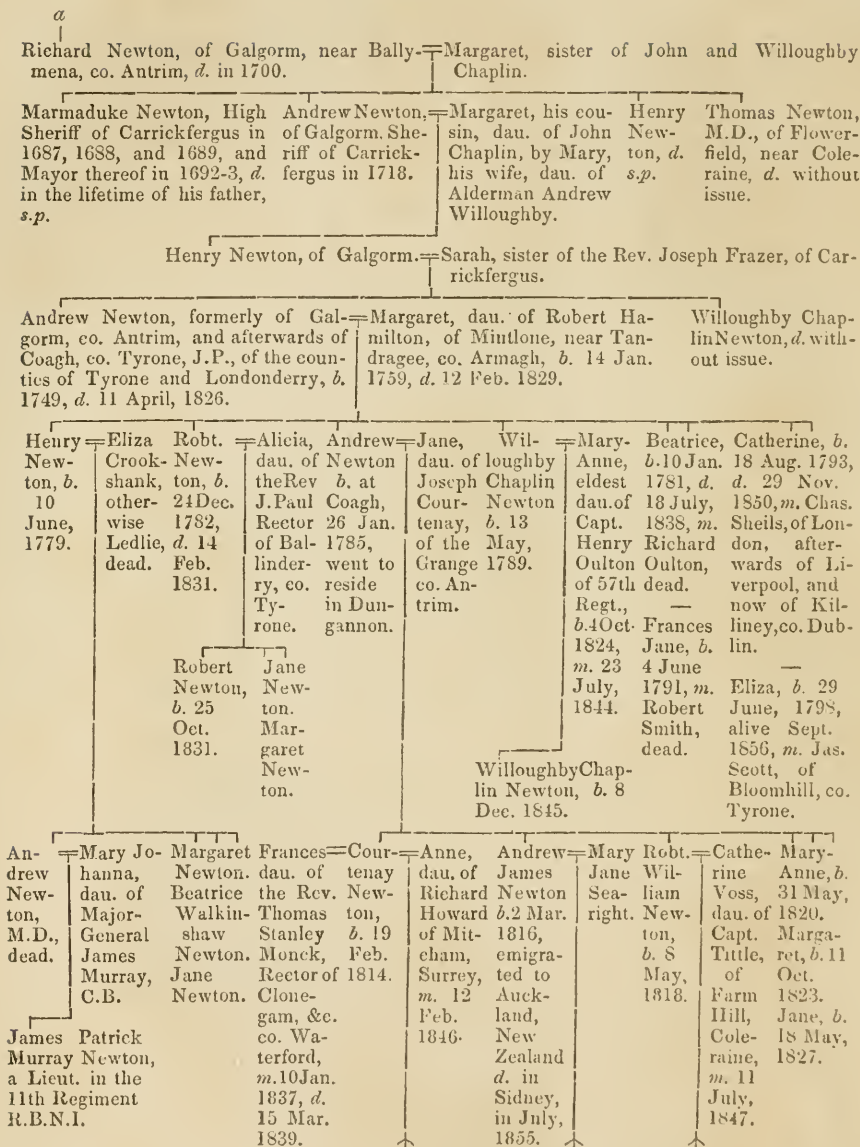 a
Richard Newton, of Galgorm, near Bally-
mena, co. Antrim, d. in 1700.
Margaret, sister of John and Willoughby
Chaplin.
Marmaduke Newton, High
Sheriff of Carrickfergus in
1687, 1688, and 1689, and
Mayor thereof in 1692-3, d.
in the lifetime of his father,
s.p.
Andrew Newton,
of Galgorm. She-
riff of Carrick-
fergus in 1718.
Margaret, his cou-
sin, dau. of John
Chaplin, by Mary,
his wife, dau. of
Alderman Andrew
Willoughby.
Henry
New-
ton, d.
s.p.
Thomas Newton,
M.D., of Flower-
field, near Cole-
raine, d. without
issue.
Henry Newton, of Galgorm.
Sarah, sister of the Rev. Joseph Frazer, of Car-
rickfergus.
Andrew Newton, formerly of Gal-
gorm, co. Antrim, and afterwards of
Coagh, co. Tyrone, J.P., of the coun-
ties of Tyrone and Londonderry, b.
1749, d. 11 April, 1826.
Margaret, dau. of Robert Ha-
milton, of Mintlone, near Tan-
dragee, co. Armagh, b. 14 Jan.
1759, d. 12 Feb. 1829.
Willoughby Chap-
lin Newton, d. with-
out issue.
Henry
New-
ton, b.
10
June,
1779.
Eliza
Crook-
shank,
other-
wise
Ledlie,
dead.
Robt.
New-
ton, b.
24 Dec.
1782,
d. 14
Feb.
1831.
Alicia,
dau. of
the Rev
J. Paul
Rector
of Bal-
linder-
ry, co.
Ty-
rone.
Andrew
Newton
b. at
Coagh,
26 Jan.
1785,
went to
reside
in Dun-
gannon.
Jane,
dau. of
Joseph
Cour-
tenay,
of the
Grange
co. An-
trim.
Wil-
loughby
Chaplin
Newton
b. 13
May,
1789.
Mary-
Anne,
eldest
dau. of
Capt.
Henry
Oulton
of 57th
Regt.,
b. 4 Oct.
1824,
m. 23
July,
1844.
Beatrice,
b. 10 Jan.
1781, d.
18 July,
1838, m.
Richard
Oulton,
dead.
—
Frances
Jane, b.
4 June
1791, m.
Robert
Smith,
dead.
Catherine, b.
18 Aug. 1793,
d. 29 Nov.
1850, m. Chas.
Sheils, of Lon-
don, after-
wards of Li-
verpool, and
now of Kil-
liney, co. Dub-
lin.
—
Eliza, b. 29
June, 1798,
alive Sept.
1856, m. Jas.
Scott, of
Bloomhill, co.
Tyrone.
Robert
Newton,
b. 25
Oct.
1831.
Jane
New-
ton.
Mar-
garet
New-
ton.
Willoughby Chap-
lin Newton, b. 8
Dec. 1845.
An-
drew
New-
ton,
M.D.,
dead.
Mary Jo-
hanna,
dau. of
Major-
General
James
Murray,
C.B.
Margaret
Newton.
Beatrice
Walkin-
shaw
Newton.
Jane
Newton.
Frances
dau. of
the Rev.
Thomas
Stanley
Monck,
Rector of
Clone-
gam, &c.
co. Wa-
terford,
m. 10 Jan.
1837, d.
15 Mar.
1839.
Cour-
tenay
New-
ton,
b. 19
Feb.
1814.
Anne,
dau. of
Richard
Howard
of Mit-
cham,
Surrey,
m. 12
Feb.
1846.
Andrew
James
Newton
b. 2 Mar.
1816,
emigra-
ted to
Auck-
land,
New
Zealand
d. in
Sidney,
in July,
1855.
Mary
Jane
Sea-
right.
Robt.
Wil-
liam
New-
ton,
b. 8
May,
1818.
Cathe-
rine
Voss,
dau. of
Capt.
Tittle,
of
Farm
Hill,
Cole-
raine,
m. 11
July,
1847.
Mary-
Anne, b.
31 May,
1820.
Marga-
ret, b. 11
Oct.
1823.
Jane, b.
18 May,
1827.
James Patrick
Murray Newton,
a Lieut. in the
11th Regiment
R.B.N.I.